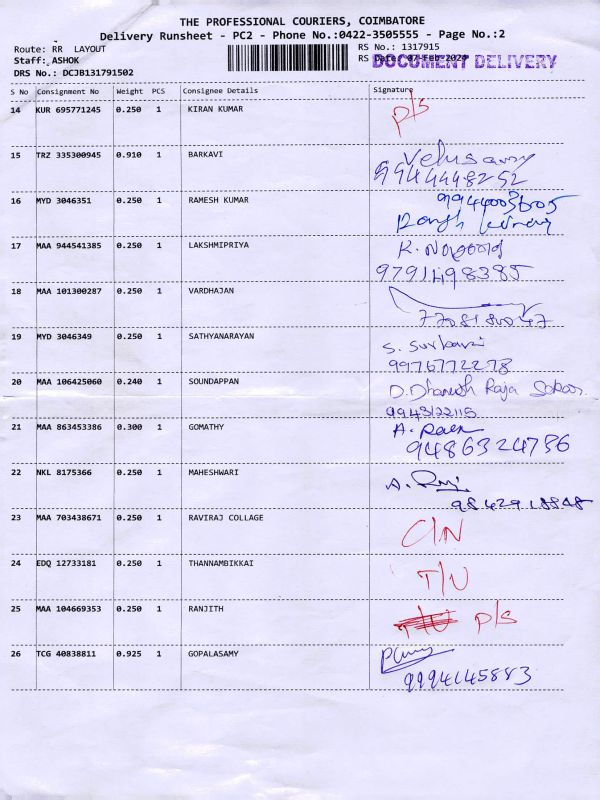 THE PROFESSIONAL COURIERS, COIMBATORE
Delivery Runsheet - PC2 - Phone No.:0422-3505555 - Page No.:2
Route: RR LAYOUT
RS No.: 1317915
Staff: ASHOK
RS Date: 07-Feb-2020
DOCUMENT DELIVERY
DRS No.: DCJB131791502
S No Consignment No Weight PCS Consignee Details Signature
14 KUR 695771245 0.250 1 KIRAN KUMAR P/S
15 TRZ 335300945 0.910 1 BARKAVI Velusamy
9944498252
16 MYD 3046351 0.250 1 RAMESH KUMAR
17 MAA 944541385 0.250 1 LAKSHMIPRIYA K.
9791498385
18 MAA 101300287 0.250 1 VARDHAJAN
19 MYD 3046349 0.250 1 SATHYANARAYAN S.
9976772278
20 MAA 106425060 0.240 1 SOUNDAPPAN D. Dhanush Raja
9943122115
21 MAA 863453386 0.300 1 GOMATHY A.
9486324786
22 NKL 8175366 0.250 1 MAHESHWARI A.
23 MAA 703438671 0.250 1 RAVIRAJ COLLAGE C/N
24 EDQ 12733181 0.250 1 THANNAMBIKKAI T/U
25 MAA 104669353 0.250 1 RANJITH P/S
26 TCG 40838811 0.925 1 GOPALASAMY
9994145883